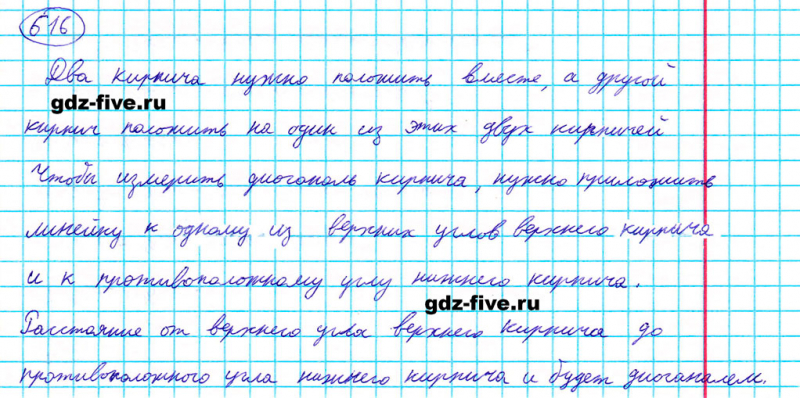 616
Два кирпича нужно положить вместе, а другой
gdz-five.ru
кирпич положить на один из этих двух кирпичей
Чтобы измерить диогональ кирпича, нужно приложить
линейку к одному из верхних углов верхнего кирпича
и к противоположному углу нижнего кирпича.
gdz-five.ru
Расстояние от верхнего угла верхнего кирпича до
противоположного угла нижнего кирпича и будет диогоналем.